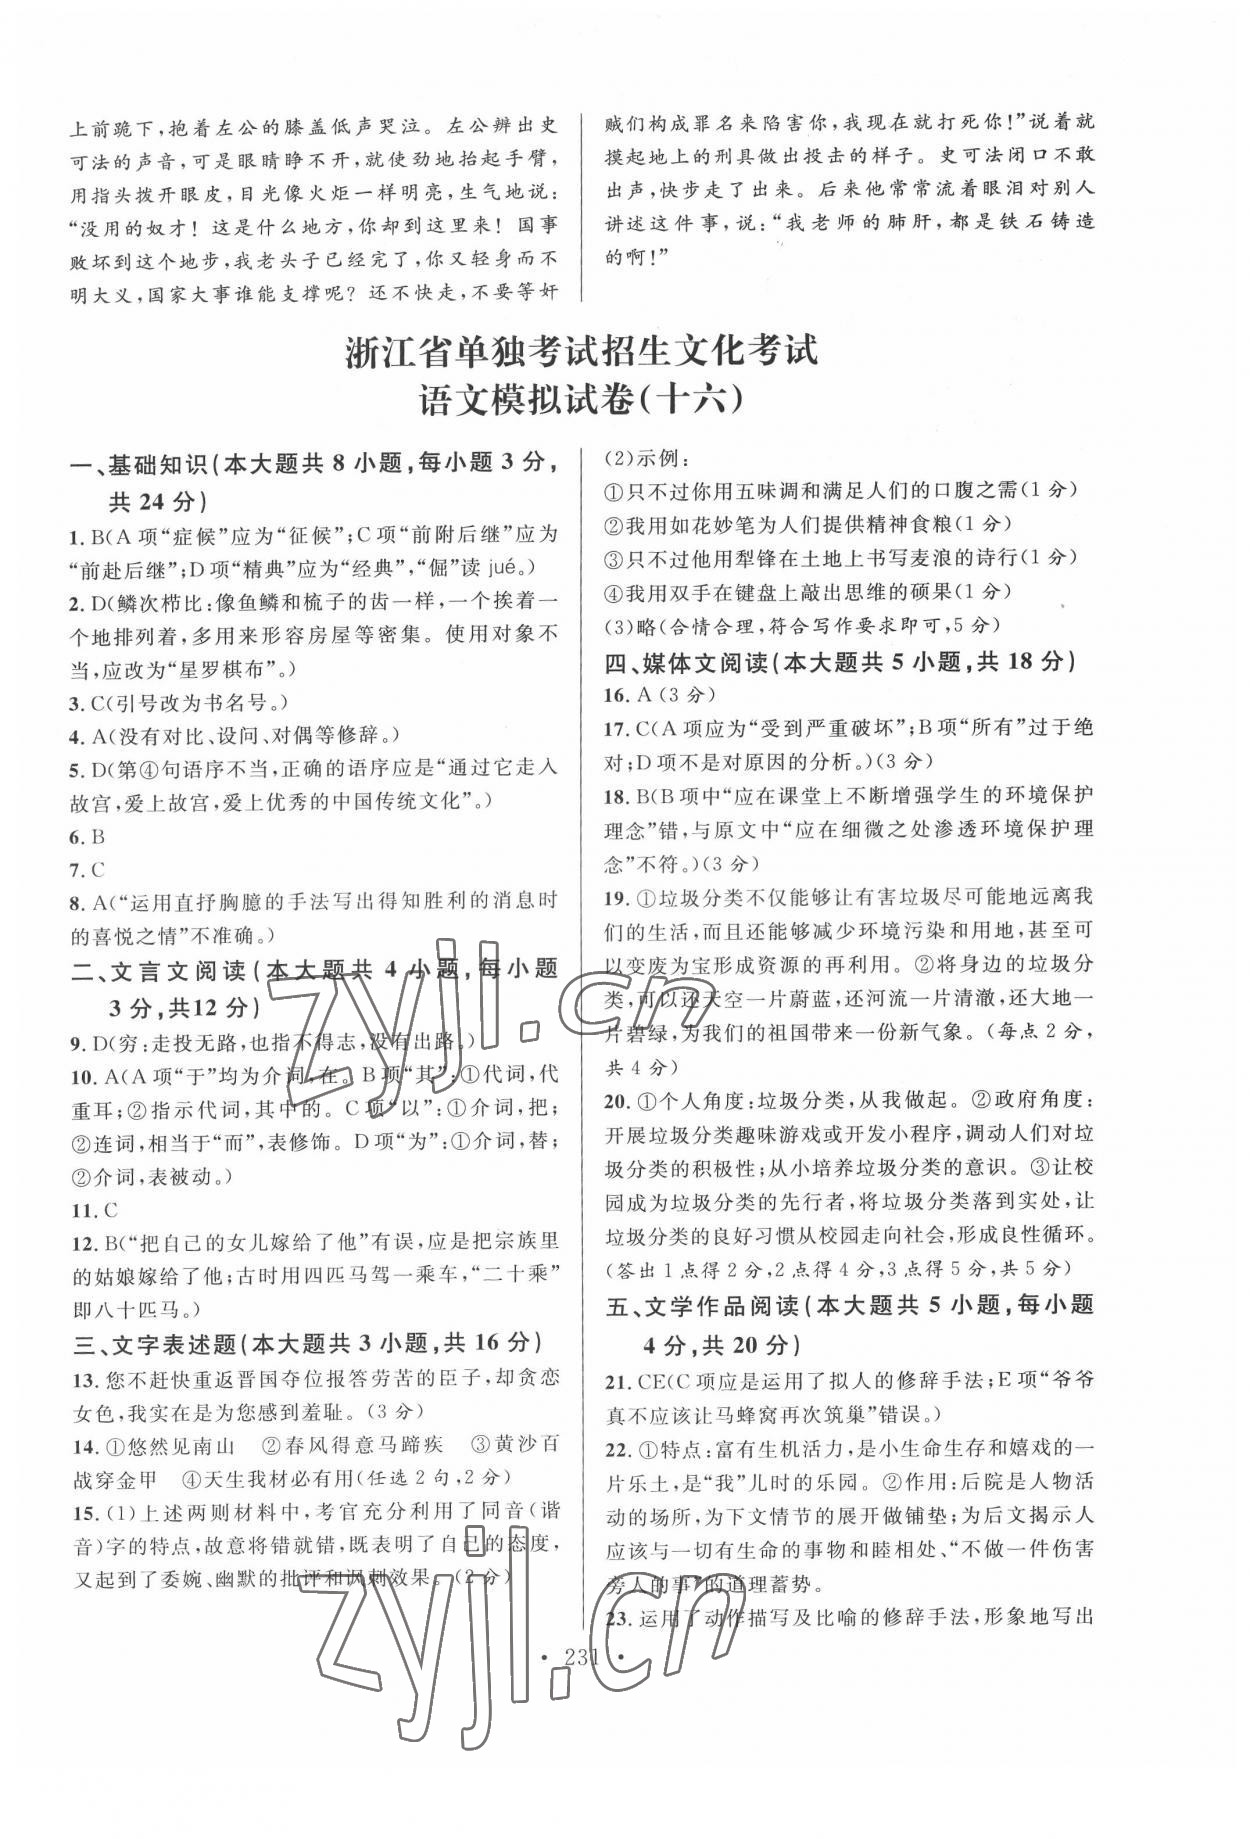 上前跪下,抱着左公的膝盖低声哭泣。左公辨出史
可法的声音,可是眼睛睁不开,就使劲地抬起手臂,
用指头拨开眼皮,目光像火炬一样明亮,生气地说:
“没用的奴才!这是什么地方,你却到这里来!国事
败坏到这个地步,我老头子已经完了,你又轻身而不
明大义,国家大事谁能支撑呢?还不快走,不要等奸
贼们构成罪名来陷害你,我现在就打死你!”说着就
摸起地上的刑具做出投击的样子。史可法闭口不敢
出声,快步走了出来。后来他常常流着眼泪对别人
讲述这件事,说:“我老师的肺肝,都是铁石铸造
的啊!”
浙江省单独考试招生文化考试
语文模拟试卷(十六)
一、基础知识(本大题共 8 小题,每小题 3 分,
共 24 分)
1. B(A 项“症候”应为“征候”;C 项“前附后继”应为
“前赴后继”;D 项“精典”应为“经典”,“倔”读 jué。)
2. D(鳞次栉比:像鱼鳞和梳子的齿一样,一个挨着一
个地排列着,多用来形容房屋等密集。使用对象不
当,应改为“星罗棋布”。)
3. C(引号改为书名号。)
4. A(没有对比、设问、对偶等修辞。)
5. D(第④句语序不当,正确的语序应是“通过它走入
故宫,爱上故宫,爱上优秀的中国传统文化”。)
6. B
7. C
8. A(“运用直抒胸臆的手法写出得知胜利的消息时
的喜悦之情”不准确。)
二、文言文阅读(本大题共 4 小题,每小题
3 分,共12 分)
9. D(穷:走投无路,也指不得志,没有出路。)
10. A(A 项“于”均为介词,在。B项“其”:①代词,代
重耳;②指示代词,其中的。C 项“以”:①介词,把;
②连词,相当于“而”,表修饰。D 项“为”:①介词,替;
②介词,表被动。)
11. C
12. B(“把自己的女儿嫁给了他”有误,应是把宗族里
的姑娘嫁给了他;古时用四匹马驾一乘车,“二十乘”
即八十匹马。)
三、文字表述题(本大题共 3 小题,共 16 分)
13. 您不赶快重返晋国夺位报答劳苦的臣子,却贪恋
女色,我私下実是为您感到羞耻。(3 分)
14. ①悠然见南山 ②春风得意马蹄疾 ③黄沙百
战穿金甲 ④天生我材必有用(任选 2 句,2 分)
15. (1)上述两则材料中,考官充分利用了同音(谐
音)字的特点,故意将错就错,既表明了自己的态度,
又起到了委婉、幽默的批评和讽刺效果。(2 分)
(2)示例:
①只不过你用五味调和满足人们的口腹之需(1 分)
②我用如花妙笔为人们提供精神食粮(1 分)
③只不过他用犁锋在土地上书写麦浪的诗行(1 分)
④我用双手在键盘上敲出思维的硕果(1 分)
(3)略(合情合理,符合写作要求即可,5 分)
四、媒体文阅读(本大题共 5 小题,共 18 分)
16. A(3 分)
17. C(A 项应为“受到严重破坏”;B 项“所有”过于绝
对;D 项不是对原因的分析。)(3 分)
18. B(B 项中“应在课堂上不断增强学生的环境保护
理念”错,与原文中“应在细微之处渗透环境保护理
念”不符。)(3 分)
19. ①垃圾分类不仅能够让有害垃圾尽可能地远离我
们的生活,而且还能够减少环境污染和用地,甚至可
以变废为宝形成资源的再利用。②将身边的垃圾分
类,可以还天空一片蔚蓝,还河流一片清澈,还大地一
片碧绿,为我们的祖国带来一份新气象。(每点 2 分,
共 4 分)
20. ①个人角度:垃圾分类,从我做起。②政府角度:
开展垃圾分类趣味游戏或开发小程序,调动人们对垃
圾分类的积极性;从小培养垃圾分类的意识。③让校
园成为垃圾分类的先行者,将垃圾分类落到实处,让
垃圾分类的良好习惯从校园走向社会,形成良性循环。
(答出 1 点得 2 分,2 点得 4 分,3 点得 5 分,共 5 分)
五、文学作品阅读(本大题共 5 小题,每小题
4 分,共 20 分)
21. CE(C 项应是运用了拟人的修辞手法;E 项“爷爷
真不应该让马蜂窝再次筑巢”错误。)
22. ①特点:富有生机活力,是小生命生存和嬉戏的一
片乐土,是“我”儿时的乐园。②作用:后院是人物活
动的场所,为下文情节的展开做铺垫;为后文揭示人
应该与一切有生命的事物和睦相处、“不做一件伤害
旁人的事”的道理蓄势。
23. 运用了动作描写及比喻的修辞手法,形象地写出
• 231 •
zyjl.cn
zyjl.cn